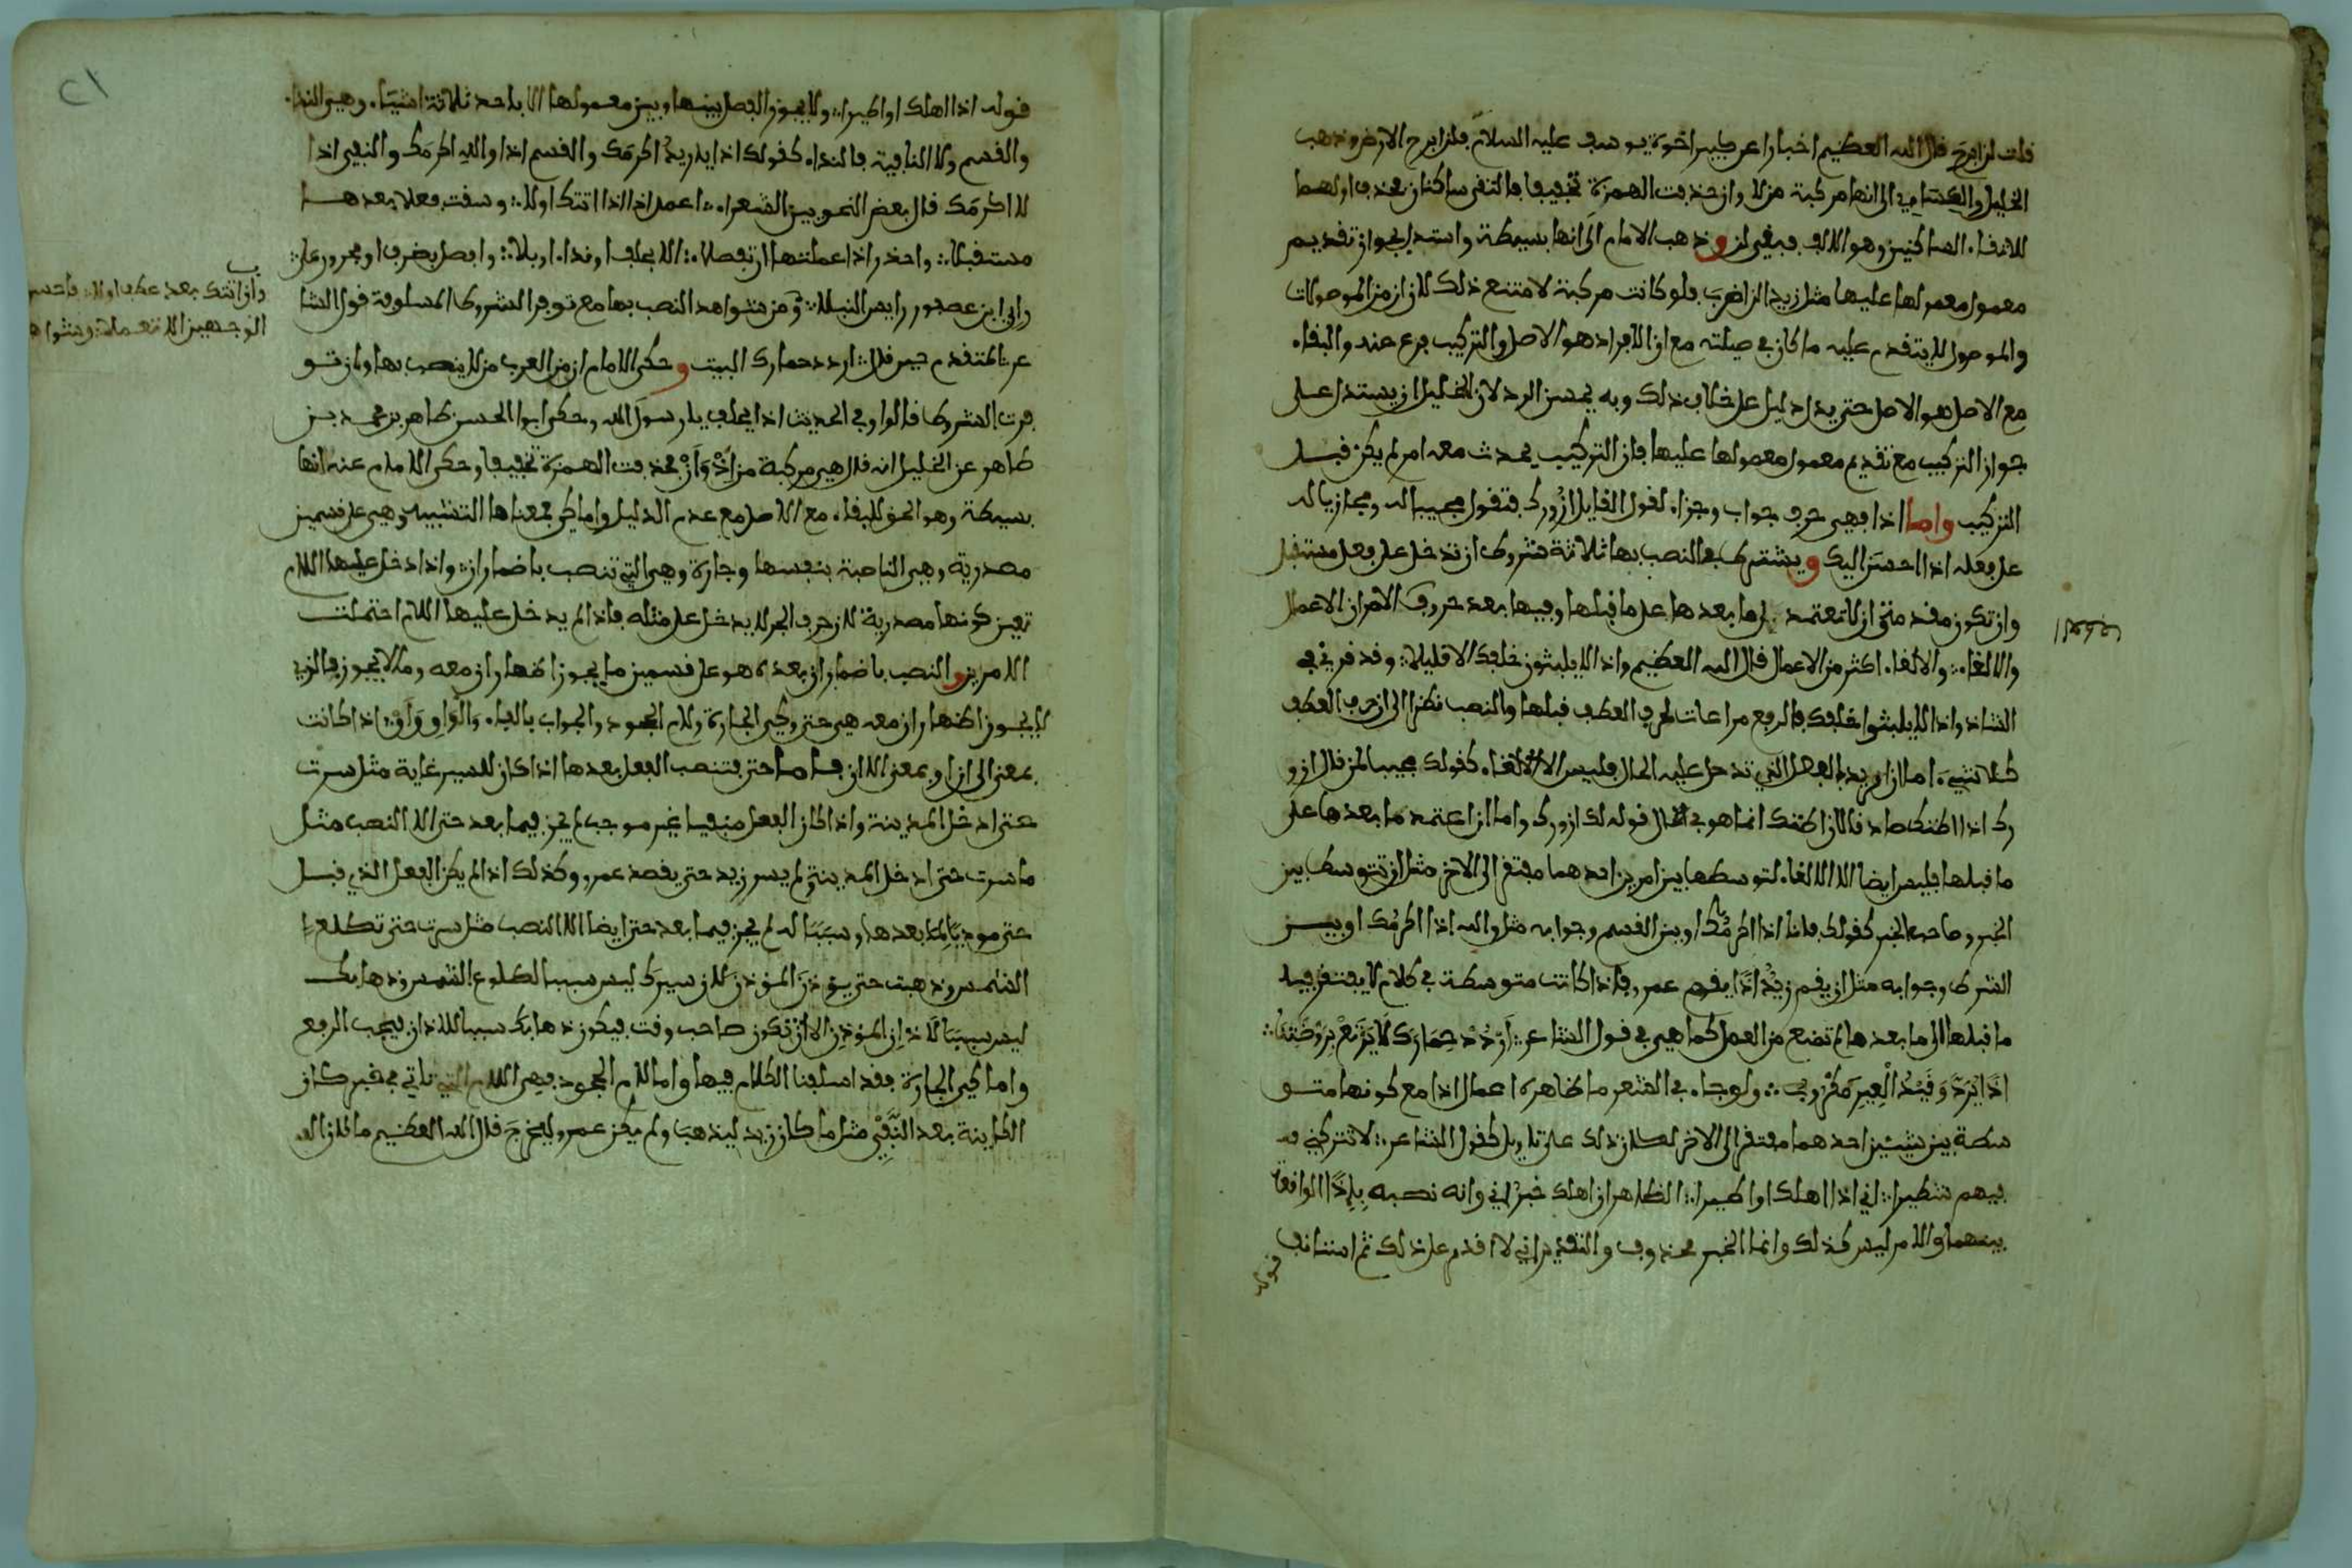 قلت لن ابرح قال الله العظيم اخبارا عن كبير اخوة يوسف عليه السلام فلن ابرح الارض وذهب
الخليل والكسائي الى انها مركبة من لا وان حذفت الهمزة تخفيفا فالتقى ساكنان فحذف اولهما
لالتقاء الساكنين وهو الالف فبقي لن وذهب الامام الى انها بسيطة واستدل بجواز تقديم
معمول معمولها عليها مثل زيدا لن اضرب فلو كانت مركبة لامتنع ذلك لان ان من الموصولات
والموصول لا يتقدم عليه ما كان في صلته مع ان الافراد هو الاصل والتركيب فرع عنه والبقاء
مع الاصل هو الاصل حتى يدل دليل على خلاف ذلك وبه يحسن الرد لان للخليل ان يستدل على
جواز التركيب مع تقديم معمول معمولها عليها فان التركيب يحدث معه امر لم يكن قبل
التركيب واما اذا فهي حرف جواب وجزاء لقول القايل ازورك فتقول مجيبا له ومجازيا له
على فعله اذا احسن اليك ويشترط في النصب بها ثلاثة شروط ان تدخل على فعل مستقبل
وان تكون مقدمة وان لا تعتمد ما بعدها على ما قبلها وفيها بعد حروف الامران الاعمال
والالغاء والالغاء اكثر من الاعمال قال الله العظيم واذا لا يلبثون خلفك الا قليلا وقد قرئ في
الشاذ واذا لا يلبثوا خلفك فالرفع مراعات لحرف العطف قبلها والنصب نظرا الى ان حرف العطف
كلا شيء اما ان اريد بالفعل الذي تدخل عليه الحال فليس الا الالغاء كقولك مجيبا لمن قال ازو
رك اذا اظنك صادقا لان اظنك انما هو في حال قوله لك ازورك واما ان اعتمد ما بعدها على
ما قبلها فليس ايضا الا الالغاء لتوسطها بين امرين احدهما مفتقر الى الاخر مثل ان تتوسط بين
الخبر وصاحب الخبر كقولك فانا اذا اكرمك او بين القسم وجوابه مثل والله اذا اكرمك او بين
الشرط وجوابه مثل ان يقم زيد اذا يقم عمرو فاذا كانت متوسطة في كلام لا يفتقر فيه
ما قبلها الى ما بعدها لم تمنع من العمل كما هي في قول الشاعر اردد حمارك لا يرتع بروضتنا
اذا يرد وقيد العير مكروب ولو جاء في الشعر ما ظاهره اعمال اذا مع كونها متو
سطة بين شيئين احدهما مفتقر الى الاخر لكان ذلك على تاويل كقول الشاعر لا تتركني
فيهم شطيرا اني اذا اهلك او اطيرا الظاهر ان اهلك خبر اني وانه نصبه باذا الواقعة
بينهما والامر ليس كذلك وانما الخبر محذوف والتقدير اني لا اقدم على ذلك ثم استانف
قوله
قوله اذا اهلك او اطيرا ولا يجوز الفصل بينها وبين معمولها الا باحد ثلاثة اشياء وهي النداء
والقسم ولا النافية فالنداء كقولك اذا يا زيد اكرمك والقسم اذا والله اكرمك والنفي اذا
لا اكرمك قال بعض النحويين الشعراء اعمل اذا اذا اتتك اولا وسقت فعلا بعدها
مستقبلا واحذر اذا اعملتها ان تفصلا الا بحلف او نداء او بلا وافصل بظرف او مجرور على
راي ابن عصفور رايس النبلا ومن شواهد النصب بها مع توفر الشروط المسلوفة قول الشا
عر المتقدم حين قال اردد حمارك البيت وحكى الامام ان من العرب من لا ينصب بها وان تو
فرت الشروط قالوا وفي الحديث اذا يحلف يا رسول الله وحكى ابو الحسن طاهر بن محمد بن
طاهر عن الخليل انه قال هي مركبة من اذ وان فحذفت الهمزة تخفيفا وحكى الامام عنه انها
بسيطة وهو الحق للبقاء مع الاصل مع عدم الدليل واما كي فمعناها التسبيب وهي على قسمين
مصدرية وهي الناصبة بنفسها وجارة وهي التي تنصب باضمار ان واذا دخل عليها اللام
تعين كونها مصدرية لان حرف الجر لا يدخل على مثله فاذا لم يدخل عليها اللام احتملت
الامرين والنصب باضمار ان بعده هو على قسمين ما يجوز اظهار ان معه وما لا يجوز فالذي
لا يجوز اظهار ان معه هي حتى وكي الجارة ولام الجحود والجواب بالفاء والواو واو اذا كانت
بمعنى الى ان او بمعنى الا ان فاما حتى فتنصب الفعل بعدها اذا كان للسير غاية مثل سرت
حتى ادخل المدينة واذا كان الفعل منفيا غير موجب لم يجز فيما بعد حتى الا النصب مثل
ما سرت حتى ادخل المدينة ولم يسر زيد حتى يقصد عمرو وكذلك اذا لم يكن الفعل الذي قبل
حتى موديا لما بعدها وسببا له لم يجز فيما بعد حتى ايضا الا النصب مثل سرت حتى تطلع
الشمس وذهبت حتى يؤذن المؤذن لان سيرك ليس سببا لطلوع الشمس وذهابك
ليس سببا لاذان المؤذن الا ان تكون صاحب وقت فيكون ذهابك سببا للاذان فيجب الرفع
واما كي الجارة فقد اسلفنا الكلام فيها واما لام الجحود فهي اللام التي تاتي في خبر كان
الكاينة بعد النفي مثل ما كان زيد ليذهب ولم يكن عمرو ليخرج قال الله العظيم ما كان الله
وان اتتك بعد عطف اولا فاحسن
الوجهين الا تعملا وشواه
٢١